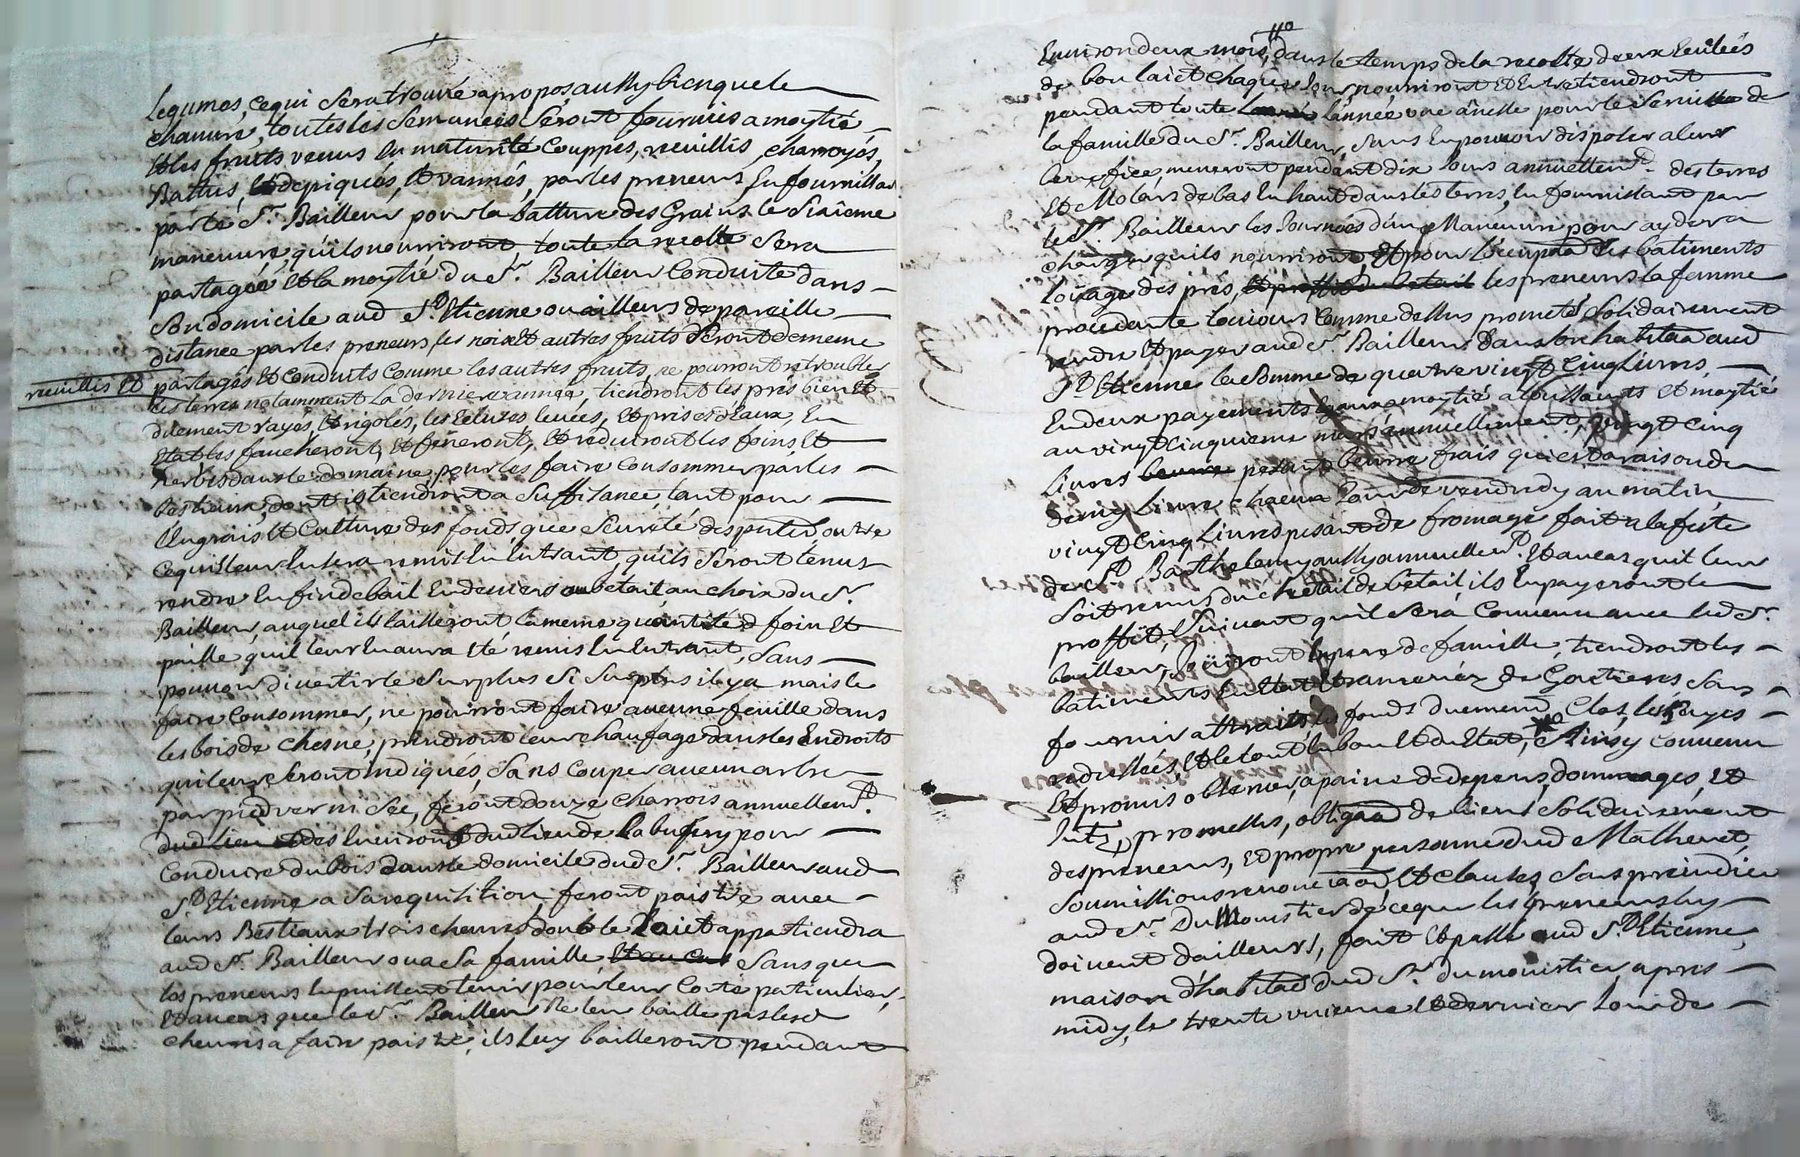 Legumes, ce qui sera trouvé a propos, aussy bien que le
chanvre, toutes les semances seront fournies a moytié
Et les fruits venus en maturité Couppés, recuillis, charroyés,
Battus, dépiqués, Et vannés, par les preneurs En fournissant
par le Sr. Bailleur pour la batture des Grains le Sixieme
maneuvre, qu'ils nourriront toute la recolte sera
partagée Et la moytié du Sr. Bailleur Conduite dans
son domicile aud St. Etienne ou ailleurs de pareille
distance par les preneurs, les noix et autres fruits seront de meme
recuillis Et
partagés Et conduits comme les autres fruits, ne pourront retroubler
les terres notamment La derniere année, tiendront les prés bien Et
duement rayés, Et rigolés, les Ecluses levées, Et prises d'eaux, En
Etat les faucheront, Et feneront, Et reduiront les foins, Et
herbes dans le domaine, pour les faire consommer par les
bestiaux, dont ils tiendront a Suffisance, tant pour
L'Engrais Et Culture des fonds, que Seureté des outre
ce qui leur En sera remis En Entrant, qu'ils seront tenus
rendre En fin de bail En deniers ou betail, au choix du Sr.
Bailleur, auquel ils laisseront la meme quantité de foin Et
paille, qu'il leur En aura Eté remis En Entrant, Sans
pouvoir divertir le Surplus Si Surplus il y a mais le
faire Consommer, ne pourront faire aucune feuille dans
les bois de chesne, prendront leur chaufage dans les Endroits
qui leur seront indiqués, sans couper aucun arbre
par pied ver ni sec, feront douze charrois annuellemt.
dud lieu de Labussery pour
Conduire du bois dans le domicile dud Sr. Bailleur aud
St. Etienne a Sa requisition, feront paistre avec
leurs Bestiaux trois chevres dont le Laict appartiendra
aud Sr. Bailleur ou a Sa famille, Sans que
les preneurs En puissent tenir pour leur Cote particulier,
Et au cas que le Sr. Bailleur Ne leur baille pas les
chevres a faire paistre, ils Luy bailleront pendant
Environ deux mois, dans le temps de la recolte
de bon laict chaque Jour, nourriront Et Entretiendront
pendant toute L'année une ânesse pour le service de
la famille du Sr. Bailleur, sans En pouvoir disposer a leur
Benefice, meneront pendant dix Jours annuellemt. des terres
Et Molars de bas En haut dans les terres, En fournissant par
le Sr. Bailleur les Journées d'un Maneuvre pour ayder a
charger qu'ils nourriront, Et pour l'occupaon des batiments
Loüage des prés, les preneurs la femme
procedante toujours Comme dessus promets Solidairement
rendre Et payer aud Sr. Bailleur dans son habitaon aud
St. Etienne la Somme de quatre vingt Cinq Livres,
En deux payements Egaux moytié a toussaints Et moytié
au vingt cinquieme mars annuellement, vingt cinq
Livres pesant beurre frais qui est a raison de
demy Livre chacun Jour de vendredy au matin,
vingt Cinq Livres pesant de fromage fait a la feste
de St. Barthelemy aussy annuellemt. Et au cas qu'il leur
soit remis du chetail de betail, ils En payeront le
proffit, Suivant qu'il sera Convenu avec led Sr.
bailleur, Joüiront En pere de famille, tiendront les
batiments En Etat Et de Goutieres sans
fournir attraits, les fonds duement Clos, les hayes
redressées, Et le tout En bon Et du Etat, Ainsy Convenu
Et promis observer, a paine de depens, dommages, Et
Intz., promesses, obligaon de biens, Solidairement
des preneurs, Et propre personne dud Matheret,
Soumissions renonciaon, Et clauses, Sans preiudice
aud Sr. Dumoustier de ce que les preneurs luy
doivent d'ailleurs, fait Et passé aud St. Etienne,
maison d'habitaon dud Sr. dumoustier apres
midy, le trente unieme Et dernier Jour de